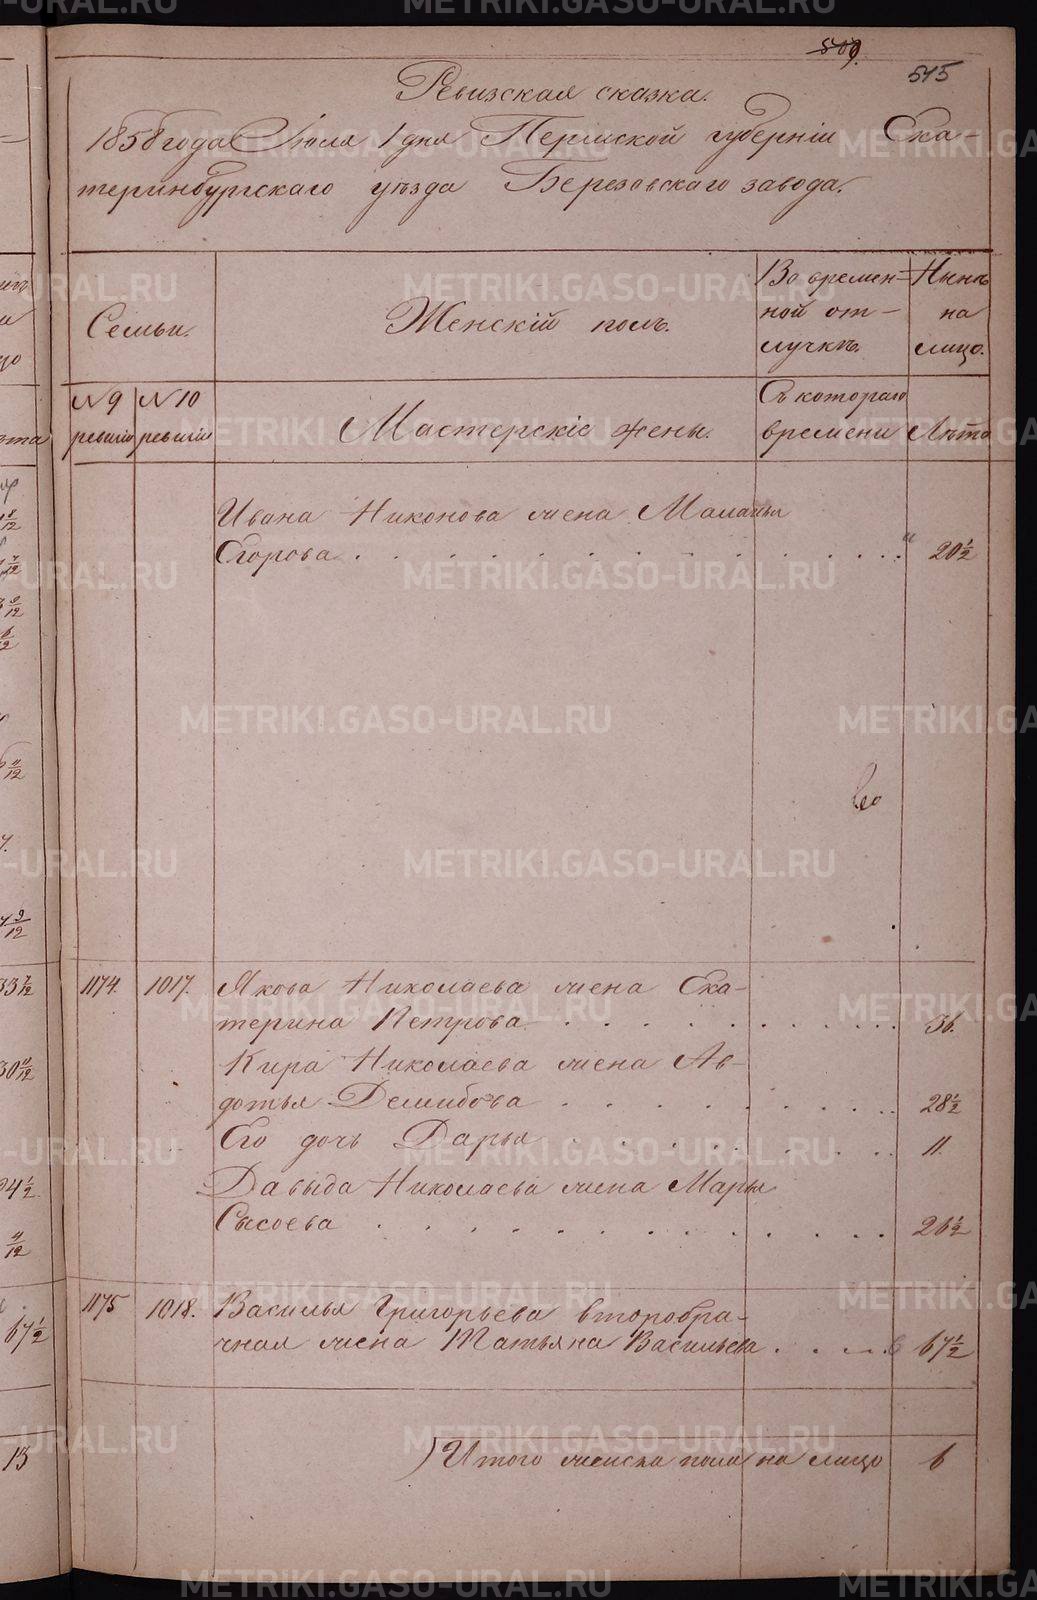 509.
515
Ревизская сказка.
1858 года Июля 1 дня Пермской губерніи Ека-
теринбургскаго уѣзда Березовскаго завода.
Семьи.
Женскій полъ.
Во времен-
ной от-
лучкѣ.
Нынѣ
на
лицо.
N 9
ревизіи
N 10
ревизіи
Мастерскіе жены.
Съ котораго
времени
Лѣта
Ивана Никонова жена Маланья
Егорова . . . . . . . . . . . . . . . 20 1/2
1174. 1017. Якова Николаева жена Ека-
терина Петрова . . . . . . . . . . 36.
Кира Николаева жена Ав-
дотья Демидова . . . . . . . . . . 28 1/2
Его дочь Дарья . . . . . . . . . . 11.
Давыда Николаева жена Марья
Сысоева . . . . . . . . . . . . 26 1/2
1175 1018. Василья Григорьева второбра-
чная жена Татьяна Васильева . . . . 67 1/2
Итого женска пола на лицо 6
METRIKI.GASO-URAL.RU